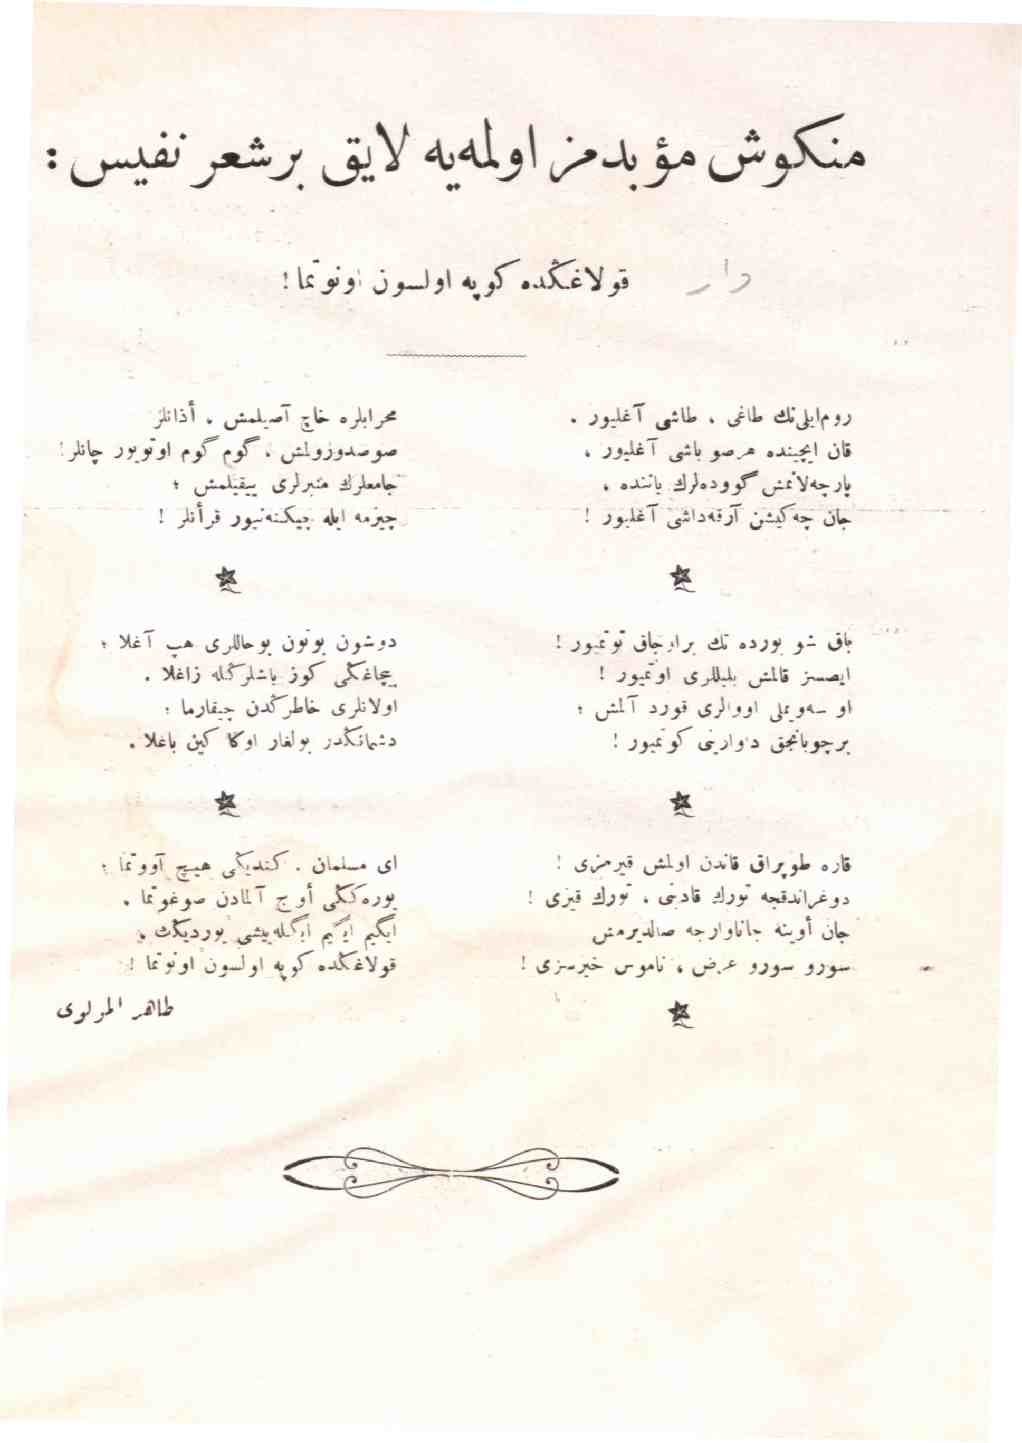 منكوش مؤبدمز اولمه‌یه لایق بر شعر نفیس :
قولاغڭده كوپه اولسون اونوتما !
دار
روم‌ایلی‌نك طاغی ، طاشی آغلیور .
قان ایچینده هر صو باشی آغلیور ،
پارچه‌لانمش گووده‌لرك یاننده ،
جان چه‌كیشن آرقه‌داشی آغلیور !
باق شو یورده تك بر اوجاق توتمیور !
ایصسز قالمش بلبللری اوتمیور !
او سه‌ویملی اووالری قورد آلمش ؛
بر چوبانجق داوارینی كوتمیور !
قاره طوپراق قاندن اولمش قیرمزی !
دوغراندقجه تورك قادینی ، تورك قیزی !
جان أوینه جاناوارجه صالدیرمش
سورو سورو عرض ، ناموس خیرسزی !
محرابلره خاچ آصیلمش ، أذانلر
صوصدوزولمش ، گوم گوم اوتویور چانلر !
جامعلرك منبرلری ییقیلمش ؛
چیزمه ایله چیكنه‌نیور قرأنلر !
دوشون بوتون بوحاللری هپ آغلا ؛
بیچاغڭی كوز یاشلرڭله زاغلا .
اولانلری خاطرڭدن چیقارما ؛
دشمانڭدر بولغار اوكا كین باغلا .
ای مسلمان . كندیڭی هیچ آووتما ؛
یوره‌كڭی أوج آلمادن صوغوتما .
ایگیم ایگیم ایڭله‌ییشی یوردیڭك ،
قولاغڭده كوپه اولسون اونوتما !
طاهر المولوی